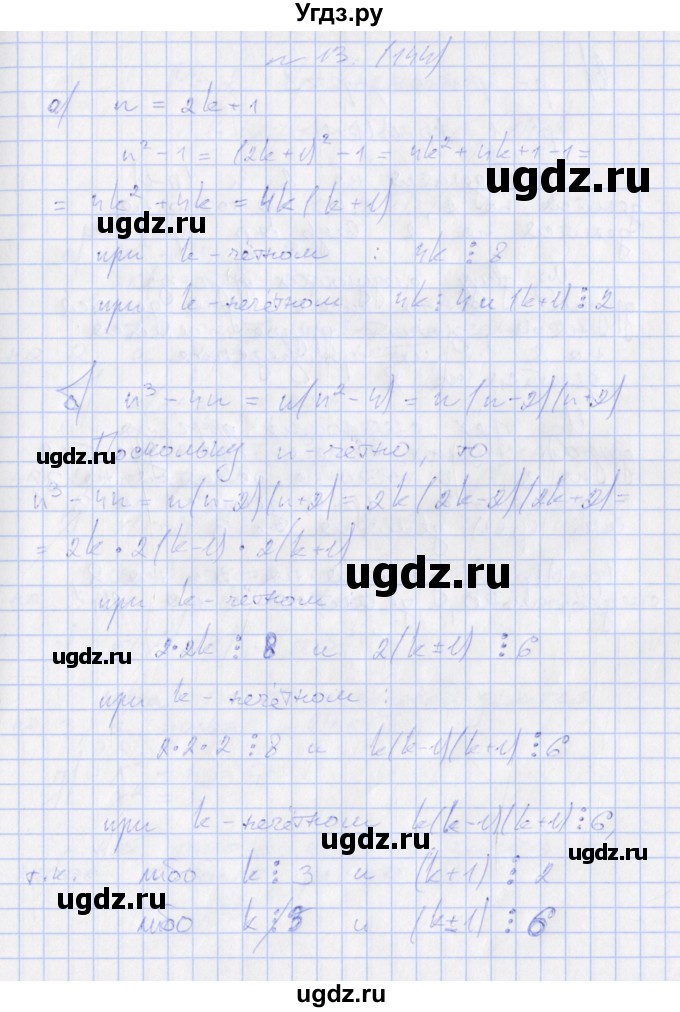 Угдз.ру
n 13. (144)
а) n = 2k+1
n² - 1 = (2k+1)² - 1 = 4k² + 4k + 1 - 1 =
ugdz.ru
= 4k² + 4k = 4k(k+1)
ugdz.ru
при k - чётном : 4k ⋮ 8
при k - нечётном 4k ⋮ 4 и (k+1) ⋮ 2
б) n³ - 4n = n(n² - 4) = n(n-2)(n+2)
ugdz.ru
Поскольку n - чётно, то
n³ - 4n = n(n-2)(n+2) = 2k(2k-2)(2k+2) =
= 2k · 2(k-1) · 2(k+1)
ugdz.ru
при k - чётном
2·2k ⋮ 8 и 2(k±1) ⋮ 6
ugdz.ru
при k - нечётном :
2·2·2 ⋮ 8 и k(k-1)(k+1) ⋮ 6
при k - нечётном k(k-1)(k+1) ⋮ 6,
ugdz.ru
ugdz.ru
т.к. либо k ⋮ 3 и (k+1) ⋮ 2
ugdz.ru
ugdz.ru
либо k ⋮̸ 3 и (k±1) ⋮ 6
ugdz.ru